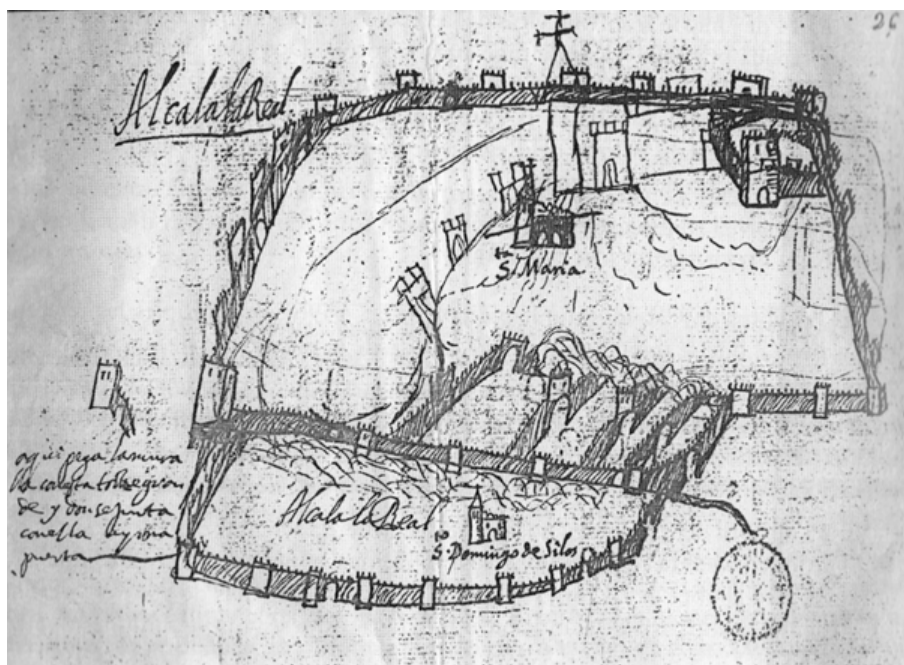 26
Alcala la Real
S.ta Maria
aqui pega la mura
lla con esta torre gran
de y donse junta
con ella ay una
puerta
Alcala la Real
S.to Domingo de Silos